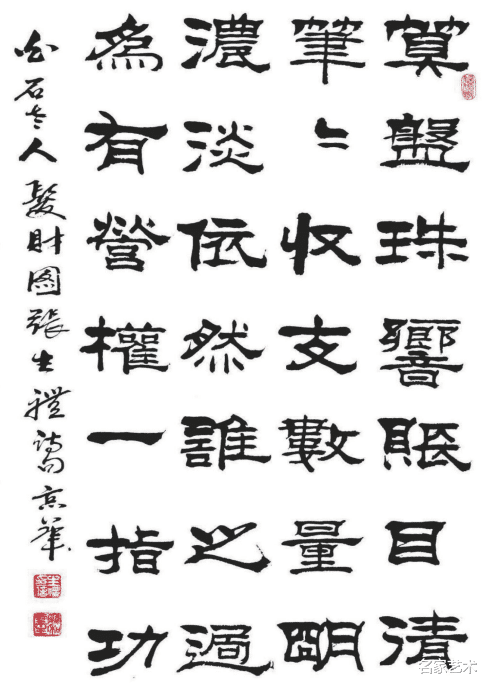 算盤珠響賬目清
筆〻收支數量明
濃淡依然誰之過
為有營權一指功
白石老人發財圖張士禮詩京華
名家艺术